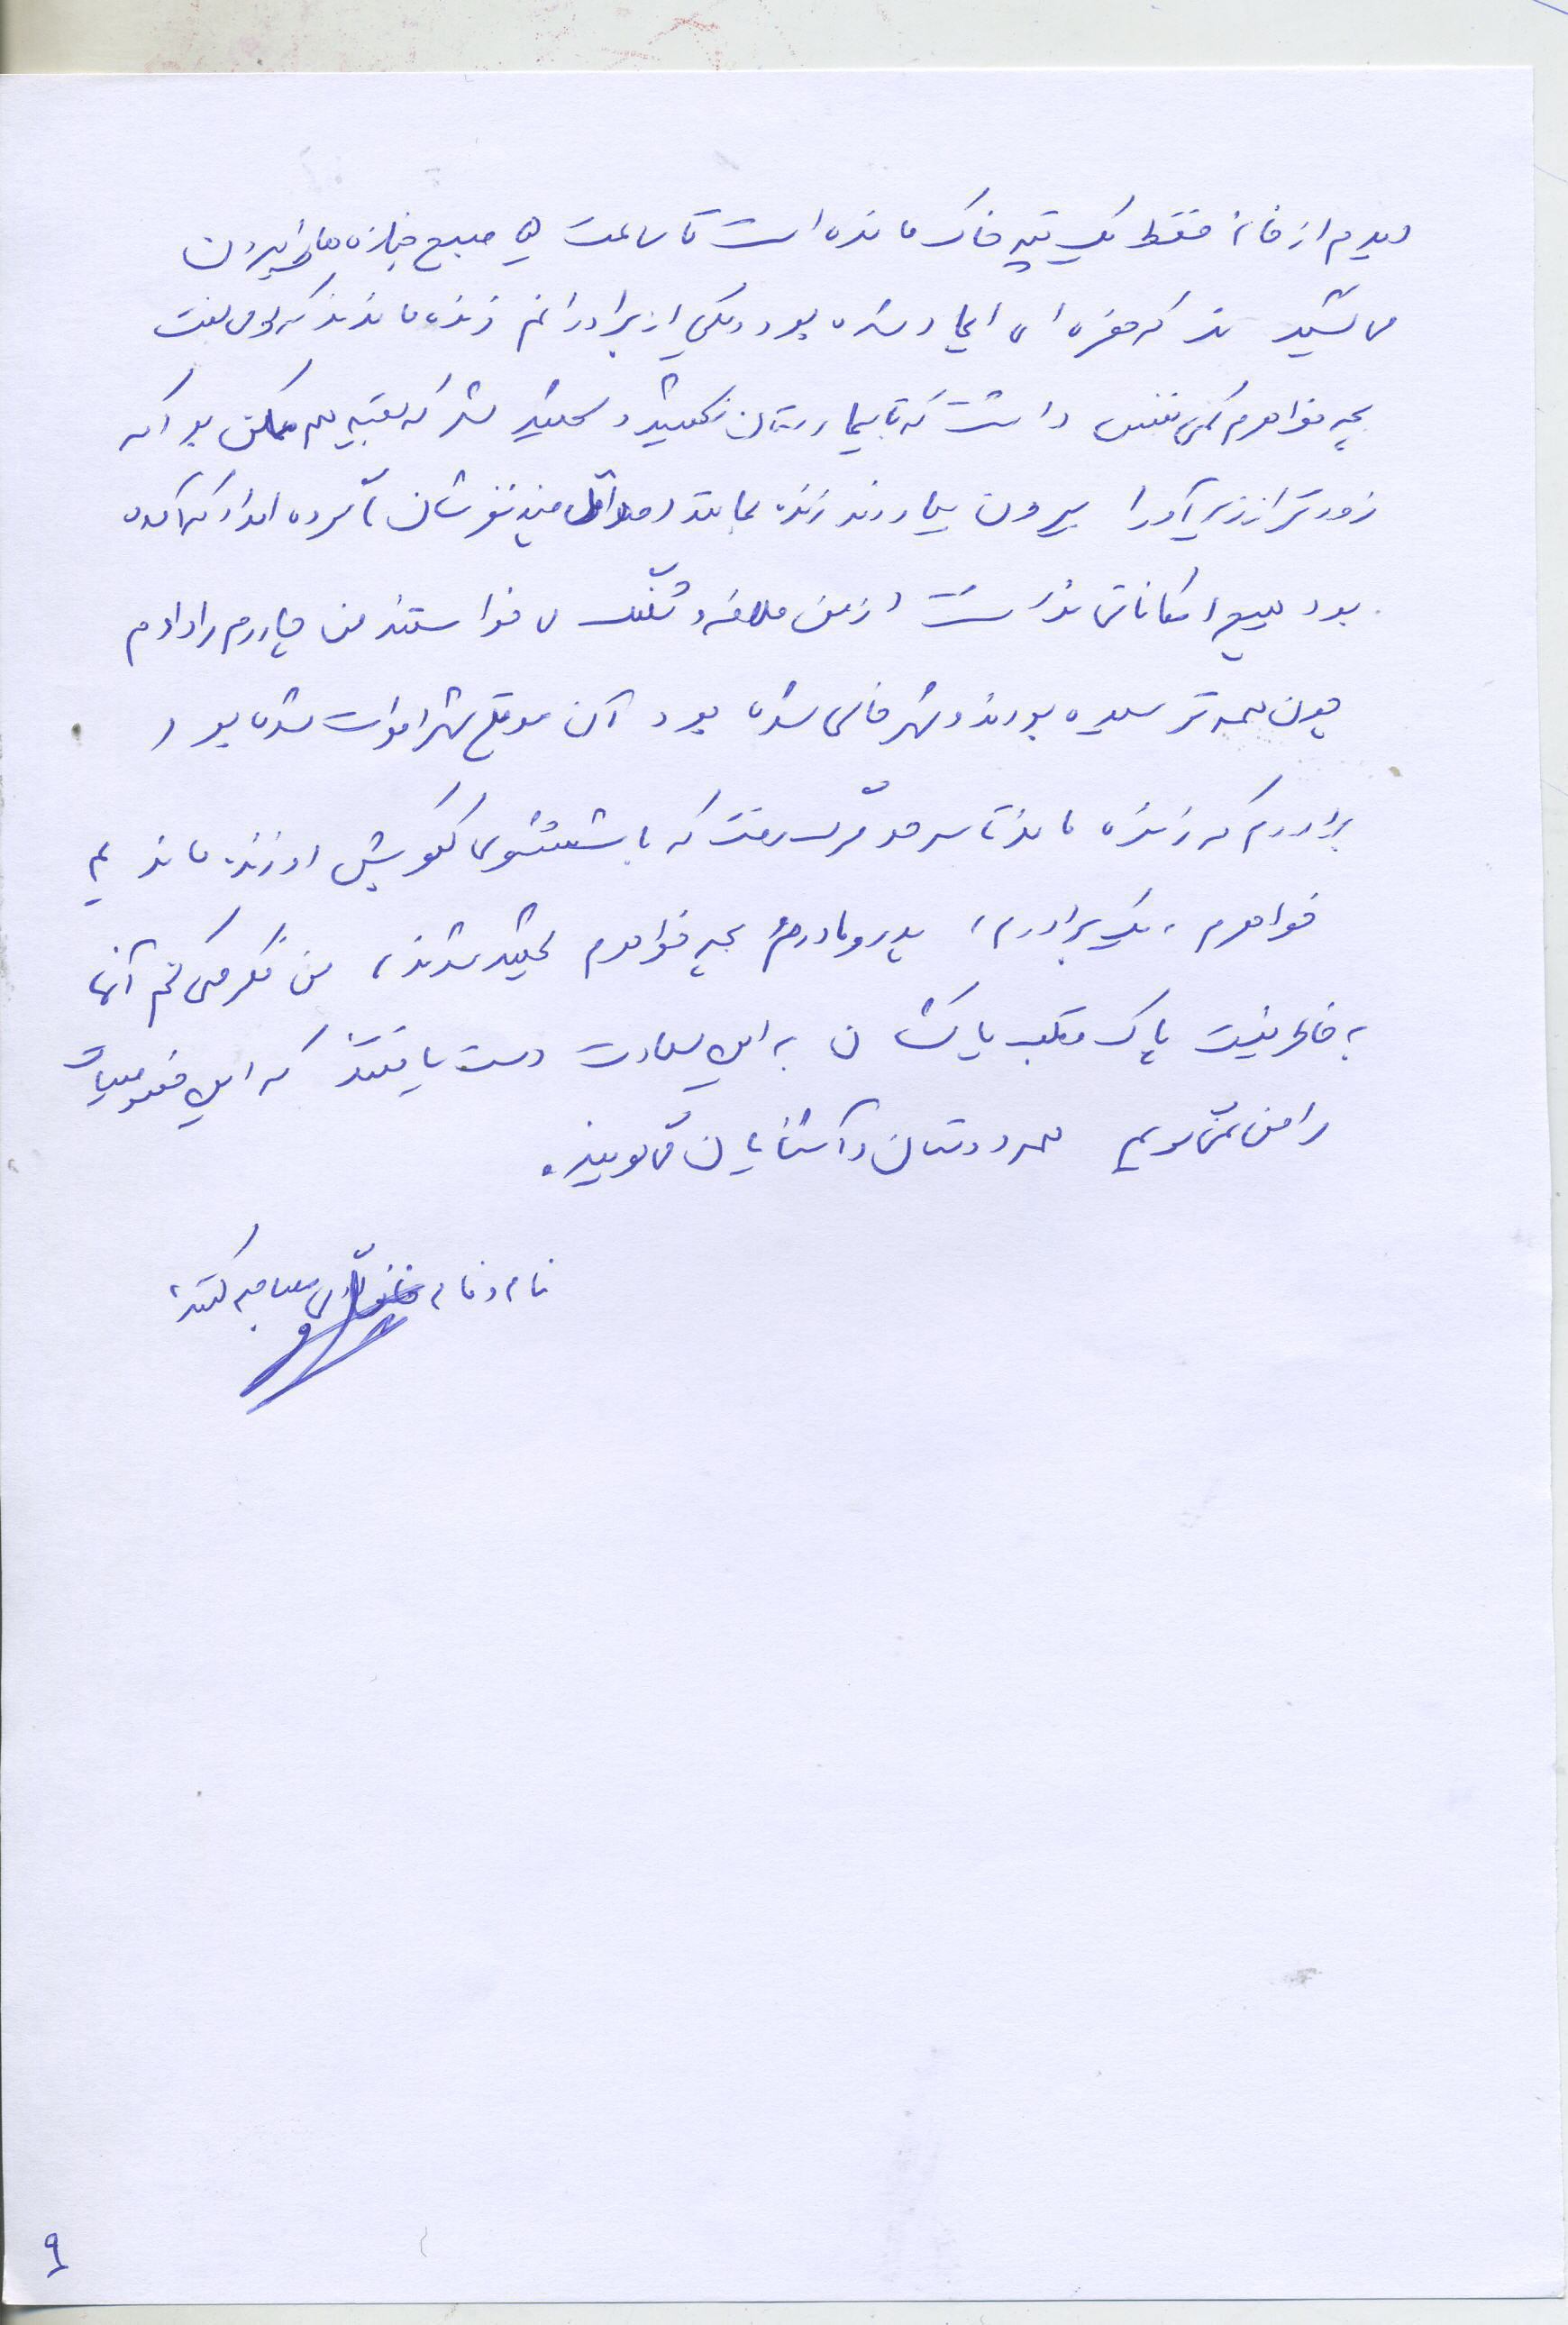 دیدم از خانه فقط یک تپه خاک مانده است تا ساعت ۵ صبع جنازه ها را بیرون
می کشید ند که حفره ای ایجاد شده بود و یکی از برادرانم زنده ماندند که او می گفت
بچه خواهرم کمی نفس داشت که تا بیمارستان نکشید و شهید شد که بقیه هم ممکن بود اگه
زودتر از زیر آوار بیرون بیاورند زنده بمانند حداقل چند نفرشان تا مرده امداد که آمده
بود هیچ امکاناتی نداشت از من ملافه و تشک می خواستند من چادرم را دادم
چون همه ترسیده بودند و شهر خالی شده بود آن موقع شهر اموات شده بود
برادرم که زنده ماند تا سرحد مرگ رفت که با شستشوی گلویش او زنده ماند
خواهرم ، یک برادرم ، پدر و مادرم بچه خواهرم شهید شدند ، من فکر می کنم آنها
به خاطر نیت پاک و قلب پاکشان به این سعادت دست یافتند که این خصوصیات
را من نمی گویم همه دوستان و آشنایان می گویند .
نام و نام خانوادگی مصاحبه کننده :
۹